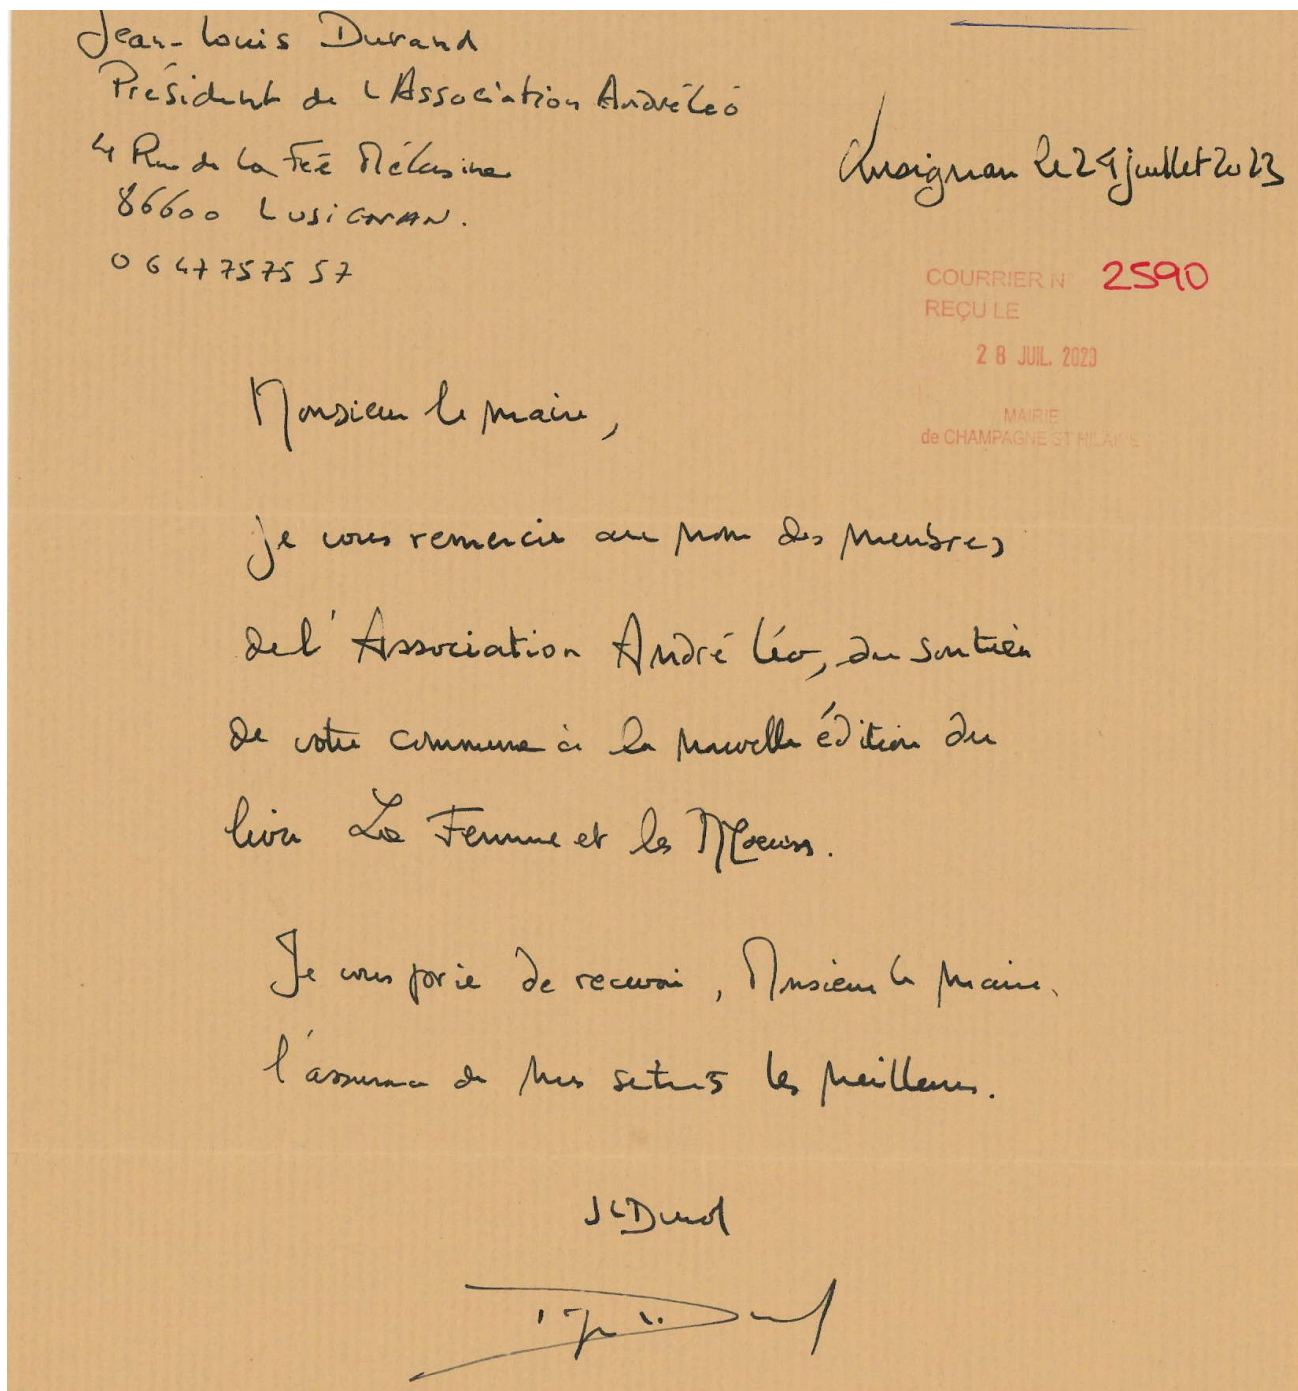 Jean-Louis Durand
Président de l'Association André Léo
4 Rue de la Fée Mélusine
86600 LUSIGNAN.
06 47 75 75 57
Lusignan le 24 juillet 2023
COURRIER N° 2590
REÇU LE
28 JUIL. 2023
MAIRIE
de CHAMPAGNE ST HILAIRE
Monsieur le Maire,
je vous remercie au nom des membres
de l'Association André Léo, du soutien
de votre commune à la nouvelle édition du
livre La Femme et les Mœurs.
Je vous prie de recevoir, Monsieur le Maire,
l'assurance de mes les meilleurs.
JL Durand